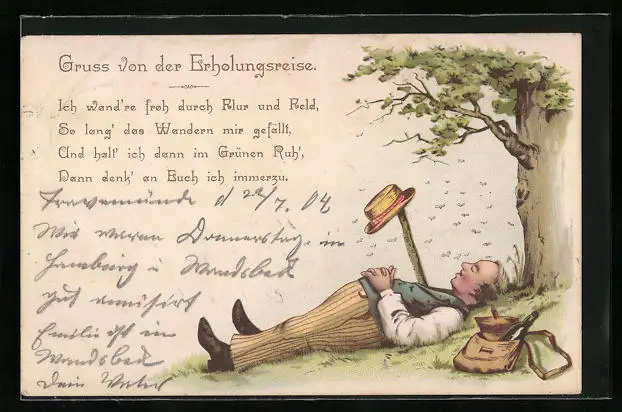 Gruss von der Erholungsreise.
Ich wand're froh durch Flur und Feld,
So lang' das Wandern mir gefällt,
Und halt' ich dann im Grünen Ruh',
Dann denk' an Euch ich immerzu.
Travemünde d 22/7. 04
Wir waren Donnerstag in
Hamburg u Wandsbeck
gut amüsirt
Emilie ist in
Wandsbeck
Dein Vater